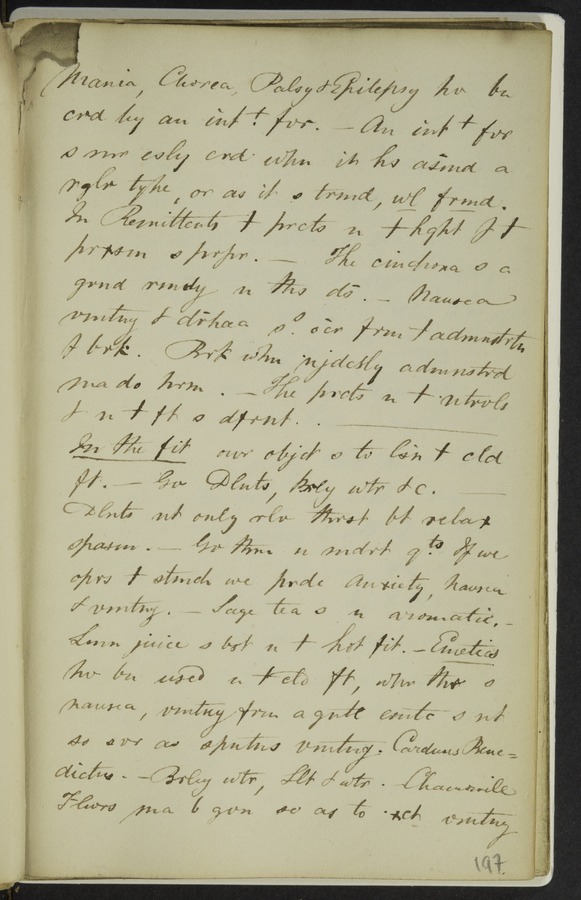 Mania, Chorea, Palsy & Epilepsy hv bn
crd by an int t fvr. – An int t fvr
s mr esly crd whn it hs asmd a
rglr type, or as it s trmd, wl frmd.
In Remittents t prcts n t hght f t
prxsm s prpr. – The cinchona s a
grnd rmdy n ths ds. – Nausea
vmtng & drhaa s o ocr frm t admnstrtn
f brk. Brk whn njdcsly admnstrd
ma do hrm. – The prcts n t ntrvls
& n t ft s dfrnt. .
In the fit our objct s to lsn t cld
ft. – Gv Dlnts, Brly wtr &c. –
Dlnts nt only rlv thrst bt relax
spasm. – Gv thm n mdrt qts If we
oprs t stmch we prdc Anxiety, nausea
& vmtng. – Sage tea s n aromatic. –
Lmn juice s bst n t hot fit. – Emetics
hv bn used n t cld ft, whr thr s
nausea, vmtng frm a gntl emtc s nt
so svr as spntns vmtng. Carduus Bene=
dictus. – Brly wtr, Slt & wtr. Chamomile
Flwrs ma b gvn so as to xct vmtng
197.